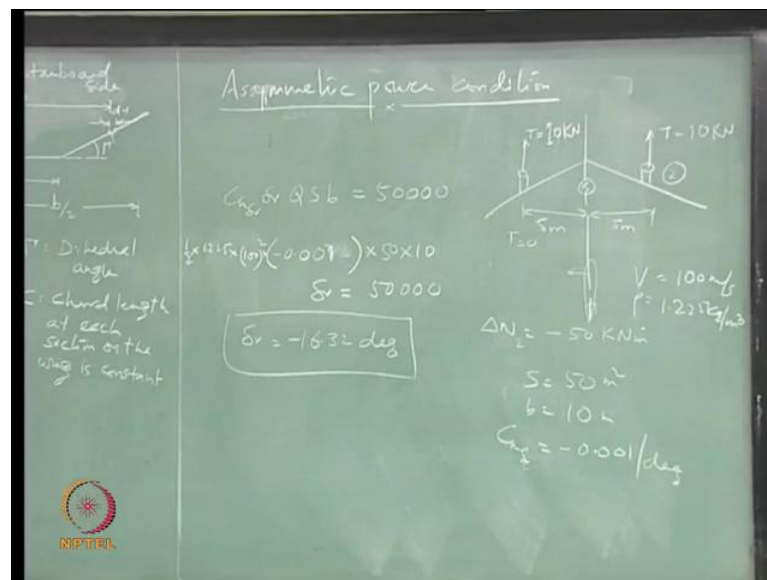 starboard
side
Γ
b/2
Γ: Dihedral
angle
C: Chord length
at each
section on the
wing is constant
Asymmetric power condition
Cnδr δr QSb = 50000
½ × 1.225 × (100)² × (-0.001) × 50 × 10
δr = 50000
δr = -16.32 deg
T = 10KN
T - 10KN
2
5m
5m
T=0
V = 100 m/s
ρ = 1.225 kg/m3
ΔN2 = - 50 KNm
S = 50 m²
b = 10 m
Cnδr = - 0.001/deg
NPTEL